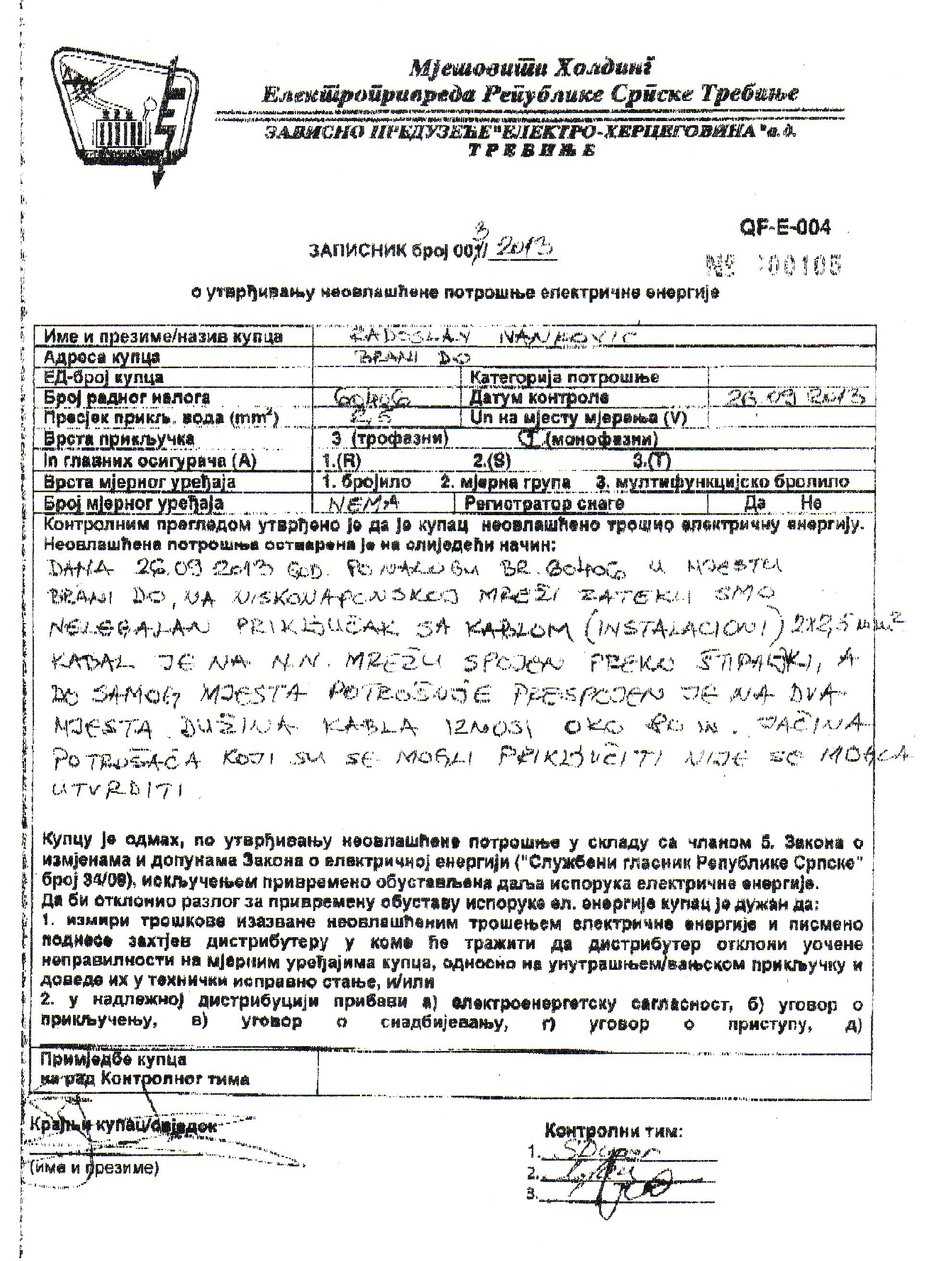 Мјешовити Холдинг
Електропривреда Републике Српске Требиње
ЗАВИСНО ПРЕДУЗЕЋЕ "ЕЛЕКТРО-ХЕРЦЕГОВИНА" а.д.
ТРЕБИЊЕ
QF-E-004
ЗАПИСНИК број 003/ 2013
№ 00105
о утврђивању неовлашћене потрошње електричне енергије
Име и презиме/назив купца RADOSLAV
Адреса купца BRANI DO
ЕД-број купца Категорија потрошње
Број радног налога Датум контроле 26 09 2013
Пресјек прикљ. вода (mm²) 2,5 Un на мјесту мјерења (V)
Врста прикључка 3 (трофазни) (монофазни)
In главних осигурача (А) 1.(R) 2.(S) 3.(T)
Врста мјерног уређаја 1. бројило 2. мјерна група 3. мултифункцијско бролило
Број мјерног уређаја NEMA Регистратор снаге Да Не
Контролним прегледом утврђено је да је купац неовлашћено трошио електричну енергију.
Неовлашћена потрошња остварена је на слиједећи начин:
DANA 26.09 2013 GOD. PO NALOGU BR. 60406 U MJESTU
BRANI DO, NA NISKONAPONSKOJ MREŽI ZATEKLI SMO
NELEGALAN PRIKLJUČAK SA KABLOM (INSTALACIONI) 2x2,5 mm²
KABAL JE NA N.N. MREŽU SPOJEN PREKO ŠTIPALJKI, A
DO SAMOG MJESTA POTROŠNJE PRESPOJEN JE NA DVA
MJESTA. DUŽINA KABLA IZNOSI OKO m. JAČINA
POTROŠAČA KOJI SU SE MOGLI PRIKLJUČITI NIJE SE MOGLA
UTVRDITI
Купцу је одмах, по утврђивању неовлашћене потрошње у складу са чланом 5. Закона о
измјенама и допунама Закона о електричној енергији ("Службени гласник Републике Српске"
број 34/09), искључењем привремено обустављена даља испорука електричне енергије.
Да би отклонио разлог за привремену обуставу испоруке ел. енергије купац је дужан да:
1. измири трошкове изазване неовлашћеним трошењем електричне енергије и писмено
поднесе захтјев дистрибутеру у коме ће тражити да дистрибутер отклони уочене
неправилности на мјерним уређајима купца, односно на унутрашњем/вањском прикључку и
доведе их у технички исправно стање, и/или
2. у надлежној дистрибуцији прибави а) електроенергетску сагласност, б) уговор о
прикључењу, в) уговор о снадбијевању, г) уговор о приступу, д)
Примједбе купца
на рад Контролног тима
Крајњи купац/свједок
(име и презиме)
Контролни тим:
1.
2.
3.